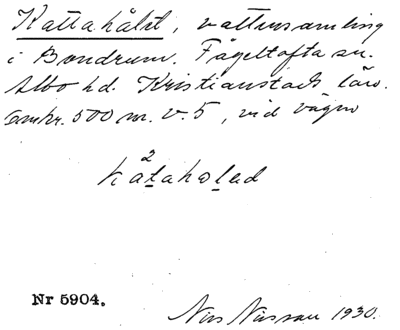 Kattahålet, vattensamling
i Bondrum. Fågeltofta sn.
Albo hd. Kristianstads län.
Omkr. 500 m. v. 5, vid vägen
kàtahǫlad
Nr 5904.
Nils Nilsson 1930.